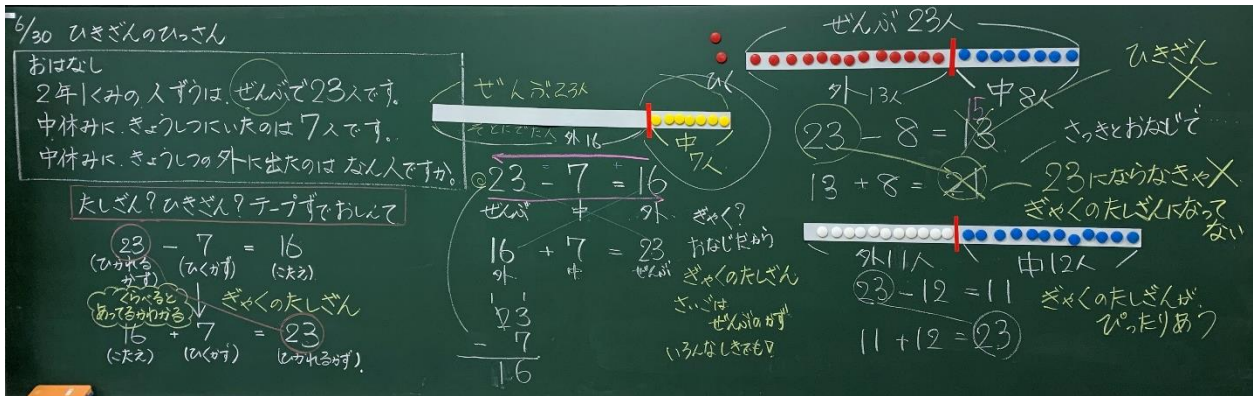 6/30 ひきざんのひっさん
おはなし
2年1くみの人ずうは、ぜんぶで23人です。
中休みに、きょうしつにいたのは7人です。
中休みに、きょうしつの外に出たのはなん人ですか。
たしざん?ひきざん?テープずでおしえて
23 - 7 = 16
(ひかれるかず) (ひくかず) (こたえ)
くらべると
あってるかわかる
ぎゃくのたしざん
16 + 7 = 23
(こたえ) (ひくかず) (ひかれるかず)
ぜんぶ23人
そとにでた人
外16
中
7人
23 - 7 = 16
ぜんぶ 中 外
16 + 7 = 23
外 中 ぜんぶ
23
- 7
16
ぎゃく?
おなじだから
ぎゃくのたしざん
さいごは
ぜんぶのかず
いろんなしきでも!
ひく
ぜんぶ23人
外13人 中8人
ひきざん
23 - 8 = 13
15
13 + 8 = 21
さっきとおなじで
23にならなきゃ
ぎゃくのたしざんになって
ない
外11人 中12人
23 - 12 = 11
11 + 12 = 23
ぎゃくのたしざんが
ぴったりあう